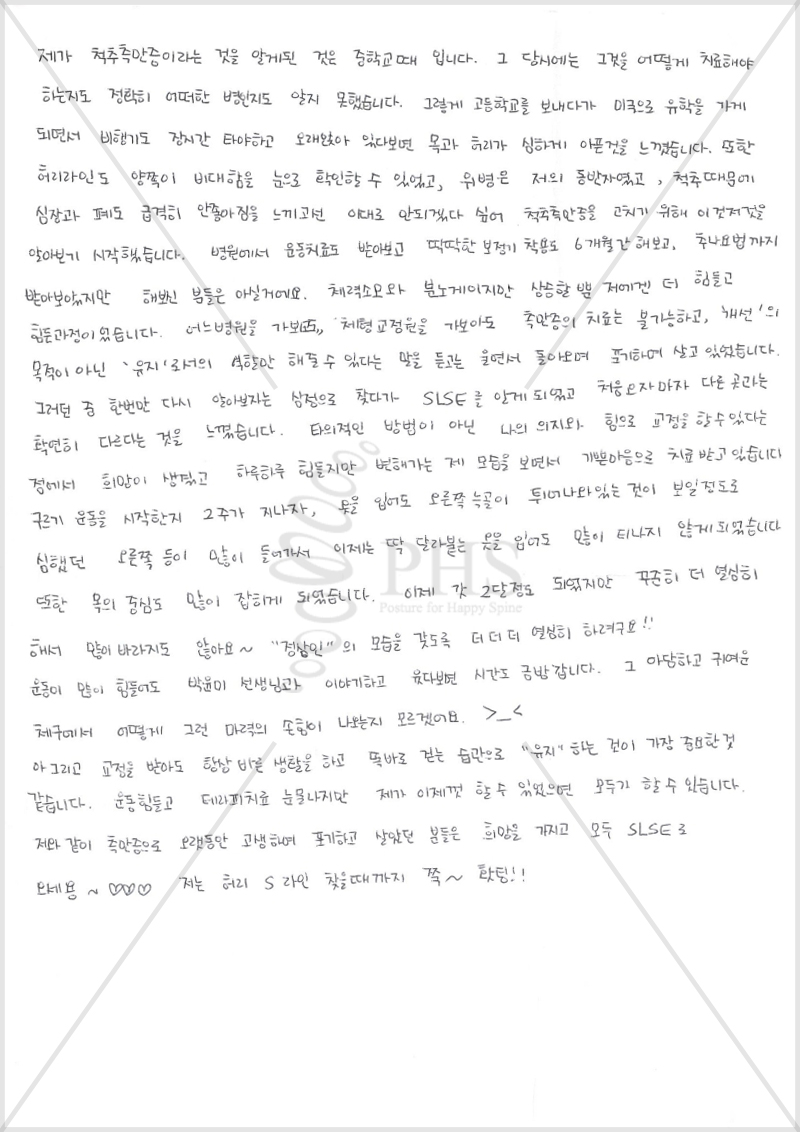 제가 척추측만증이라는 것을 알게된 것은 중학교때 입니다. 그 당시에는 그것을 어떻게 치료해야
하는지도 정확히 어떠한 병인지도 알지 못했습니다. 그렇게 고등학교를 보내다가 미국으로 유학을 가게
되면서 비행기도 장시간 타야하고 오래앉아 있다보면 목과 허리가 심하게 아픈것을 느꼈습니다. 또한
허리라인도 양쪽이 비대함을 눈으로 확인할 수 있었고, 위병은 저의 동반자였고, 척추때문에
심장과 폐도 급격히 안좋아짐을 느끼고선 이대로 안되겠다 싶어 척추측만증을 고치기 위해 이것저것을
알아보기 시작했습니다. 병원에서 운동치료도 받아보고 딱딱한 보정기 착용도 6개월간 해보고, 추나요법까지
받아보았지만 해보신 분들은 아실거에요. 체력소모와 분노게이지만 상승할 뿐 저에겐 더 힘들고
힘든과정이었습니다. 어느병원을 가보고, 체형교정원을 가보아도 측만증의 치료는 불가능하고, '개선'의
목적이 아닌 '유지'로서의 역할만 해줄 수 있다는 말을 듣고는 울면서 돌아오며 포기하며 살고 있었습니다.
그러던 중 한번만 다시 알아보자는 심정으로 찾다가 SLSE를 알게 되었고 처음오자마자 다른 곳과는
확연히 다르다는 것을 느꼈습니다. 타의적인 방법이 아닌 나의 의지와 힘으로 교정을 할 수 있다는
점에서 희망이 생겼고 하루하루 힘들지만 변해가는 제 모습을 보면서 기쁜마음으로 치료 받고 있습니다
구르기 운동을 시작한지 2주가 지나자, 옷을 입어도 오른쪽 늑골이 튀어나와있는 것이 보일정도로
심했던 오른쪽 등이 많이 들어가서 이제는 딱 달라붙는 옷을 입어도 많이 티나지 않게 되었습니다
또한 목의 중심도 많이 잡히게 되었습니다. 이제 갓 2달정도 되었지만 꾸준히 더 열심히
해서 많이 바라지도 않아요~ "정상인"의 모습을 갖도록 더 더 더 열심히 하려구요!!
운동이 많이 힘들어도 박윤미 선생님과 이야기하고 웃다보면 시간도 금방 갑니다. 그 아담하고 귀여운
체구에서 어떻게 그런 마력의 손힘이 나오는지 모르겠어요. >_<
아 그리고 교정을 받아도 항상 바른 생활을 하고 똑바로 걷는 습관으로 "유지"하는 것이 가장 중요한것
같습니다. 운동힘들고 테라피치료 눈물나지만 제가 이제껏 할 수 있었으면 모두가 할 수 있습니다.
저와 같이 측만증으로 오랫동안 고생하며 포기하고 살았던 분들은 희망을 가지고 모두 SLSE로
오세용~ ♡♡♡ 저는 허리 S라인 찾을때까지 쭉~ 홧팅!!
PHS
Posture for Happy Spine